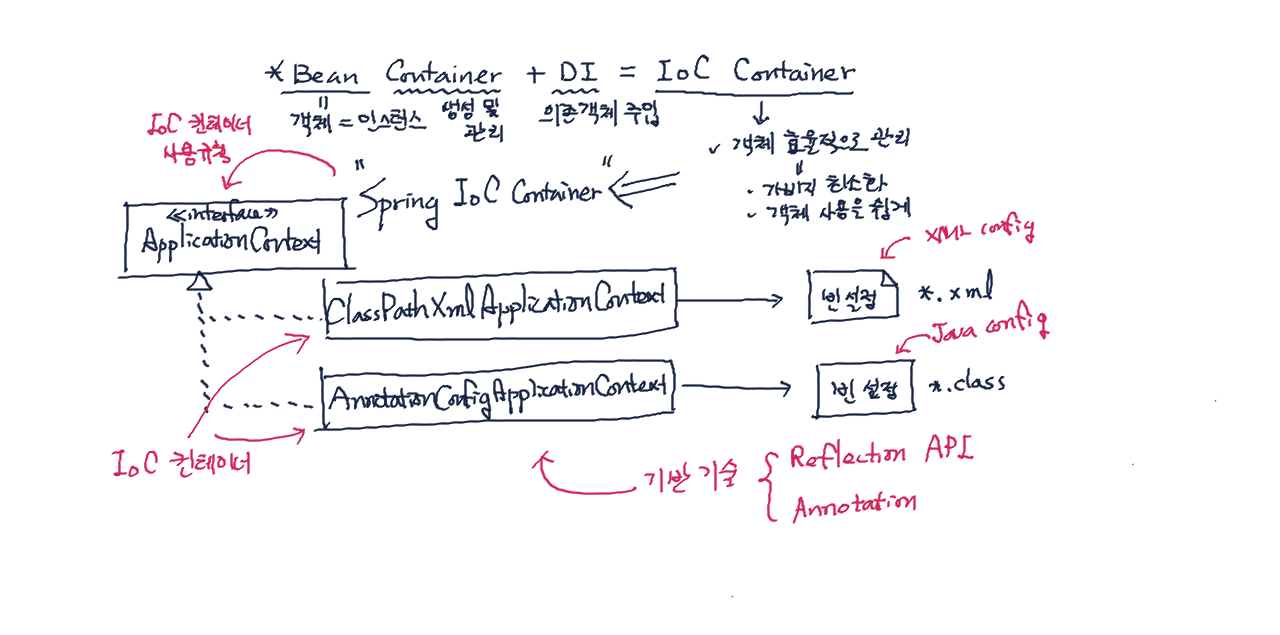 * Bean Container + DI = IoC Container
객체 = 인스턴스
생성 및
관리
의존객체 주입
✓ 객체 효율적으로 관리
• 가비지 최소화
✓ 객체 사용을 쉽게
IoC 컨테이너
사용규칙
"Spring IoC Container"
<<interface>>
ApplicationContext
XML config
ClassPathXmlApplicationContext
빈 설정
*.xml
Java config
AnnotationConfigApplicationContext
빈 설정
*.class
IoC 컨테이너
기반 기술
Reflection API
Annotation